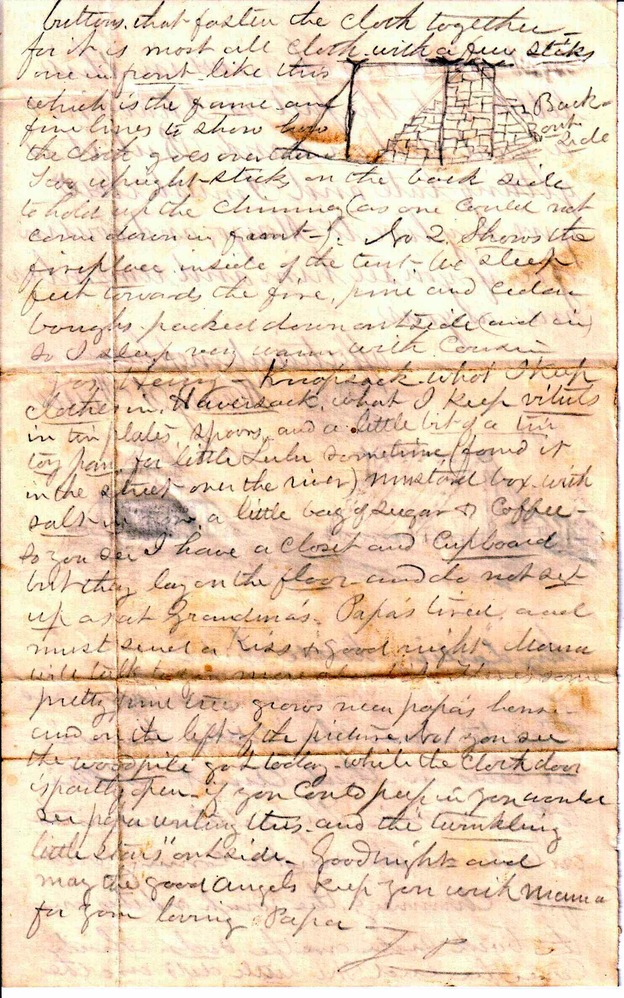 buttons that fasten the cloth together
for it is most all cloth with a few sticks
one in front like this
which is the frame and
fine lines to show how
the cloth goes over them
Back
out
side
Two upright sticks on the back side
to hold up the chimney (as one could not
come down in front). No 2. Shows the
fireplace inside of the tent. We sleep
feet towards the fire, pine and cedar
boughs packed down outside (and in)
so I sleep very warm with Cousin
Henry - Knapsack what I keep
clothes in, Haversack, what I keep vituls
in tin plates, spoons, and a little bit of a tin
toy pan for little Lulu sometime (found it
in the street over the river) mustard box with
salt in a little bag of sugar & Coffee -
so you see I have a closet and Cupboard
but they lay on the floor and do not set
up as at Grandma's. Papa's tired, and
must send a Kiss & good night. Mama
will talk to you more
pretty pine tree grows near papa's house -
and on the left of the picture, but you see
the woodpile got today - while the cloth door
is partly open - if you could peep in you would
see papa writing this - and the twinkling
little stars" outside - Goodnight and
may the good angels keep you with Mama
for your loving Papa -
J P